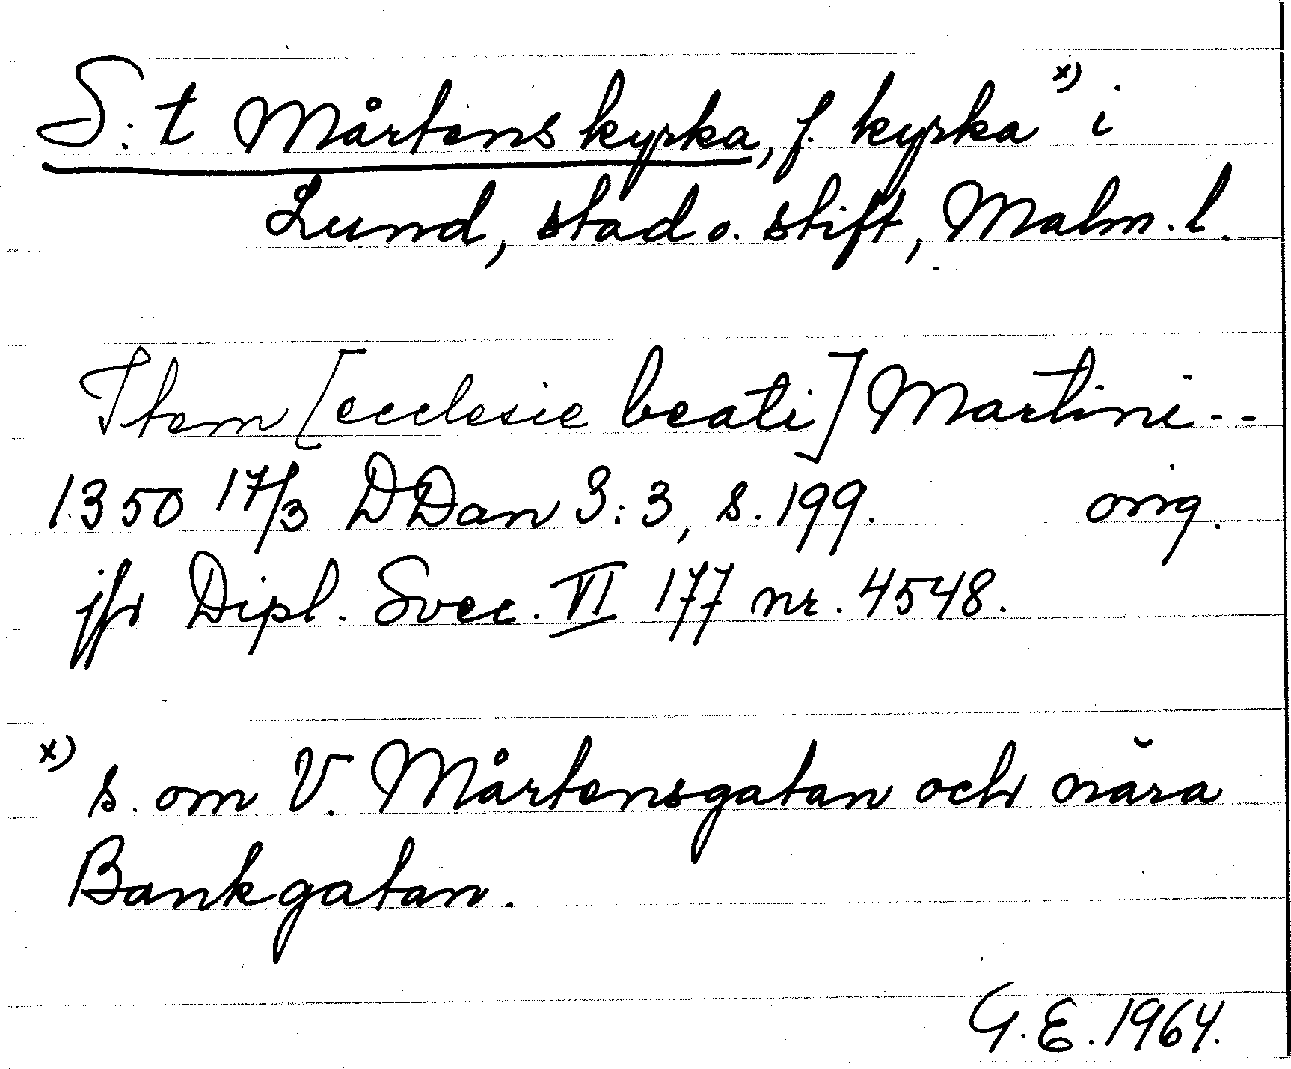 S:t Mårtens kyrka, f. kyrka x) i
Lund, stad o. stift, Malm. l.
Item [ecclesie beati] Martini --
1350 17/3 DDan 3:3, s. 199. orig.
jfr Dipl. Svec. VI 177 nr. 4548.
x) s. om V. Mårtensgatan och nära
Bankgatan.
G. E. 1964.